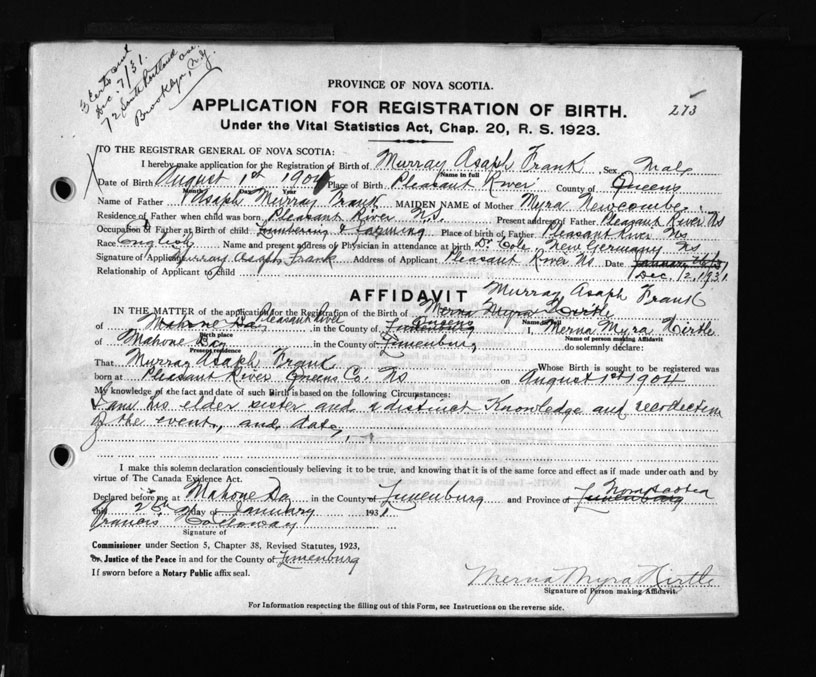 3 Certs sent
Dec. 7/31.
72 South Portland ave
Brooklyn, N.Y.
PROVINCE OF NOVA SCOTIA.
APPLICATION FOR REGISTRATION OF BIRTH.
273
Under the Vital Statistics Act, Chap. 20, R. S. 1923.
TO THE REGISTRAR GENERAL OF NOVA SCOTIA:
I hereby make application for the Registration of Birth of Murray Asaph Frank Sex Male
Name in full
Date of Birth August 1st 1904 Place of Birth Pleasant River County of Queens
Month Day Year
Name of Father Asaph Murray Frank MAIDEN NAME of Mother Myra Newcombe
Residence of Father when child was born Pleasant River N.S. Present address of Father Pleasant River Ns
Occupation of Father at Birth of child Lumbering & Farming Place of birth of Father Pleasant River Ns
Race English Name and present address of Physician in attendance at birth Dr Cole, New Germany Ns
Signature of Applicant Murray Asaph Frank Address of Applicant Pleasant River Ns Date January
Relationship of Applicant to child Dec. 12, 1931.
AFFIDAVIT Murray Asaph Frank
IN THE MATTER of the application for the Registration of the Birth of Merna Myra Hirtle
Name in full
of Mahone Bay Pleasant River, in the County of Lunenburg Queens I, Merna Myra Hirtle
Birth place Name of person making Affidavit
of Mahone Bay in the County of Lunenburg do solemnly declare:
Present residence
That Murray Asaph Frank Whose Birth is sought to be registered was
born at Pleasant River Queens Co. Ns on August 1st 1904
My knowledge of the fact and date of such Birth is based on the following Circumstances:
I am his elder sister and distinct Knowledge and recollection
of the event, and date,
I make this solemn declaration conscientiously believing it to be true, and knowing that it is of the same force and effect as if made under oath and by
virtue of The Canada Evidence Act.
Declared before me at Mahone Bay in the County of Lunenburg and Province of Lunenburg Nova Scotia
this day of January 1931
Francis
Signature of
Commissioner under Section 5, Chapter 38, Revised Statutes, 1923,
Or Justice of the Peace in and for the County of Lunenburg
If sworn before a Notary Public affix seal.
Merna Myra Hirtle
Signature of Person making Affidavit.
For Information respecting the filling out of this Form, see Instructions on the reverse side.